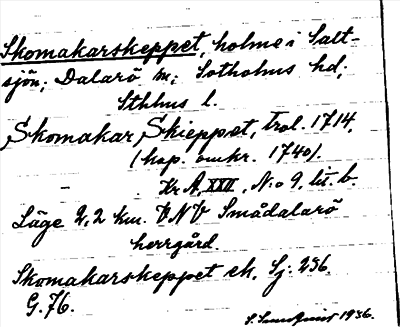 Skomakarskeppet, holme i Salt-
sjön; Dalarö sn; Sotholms hd;
Sthlms l.
Skomakar Skieppet, trol. 1714,
(kop. omkr. 1740).
Kr. A, XXII, N:o 9, lit. b.
Läge 2,2 km. VNV Smådalarö
herrgård.
Skomakarskeppet ek. Sj: 256.
G. 76.
S. Sundquist 1936.